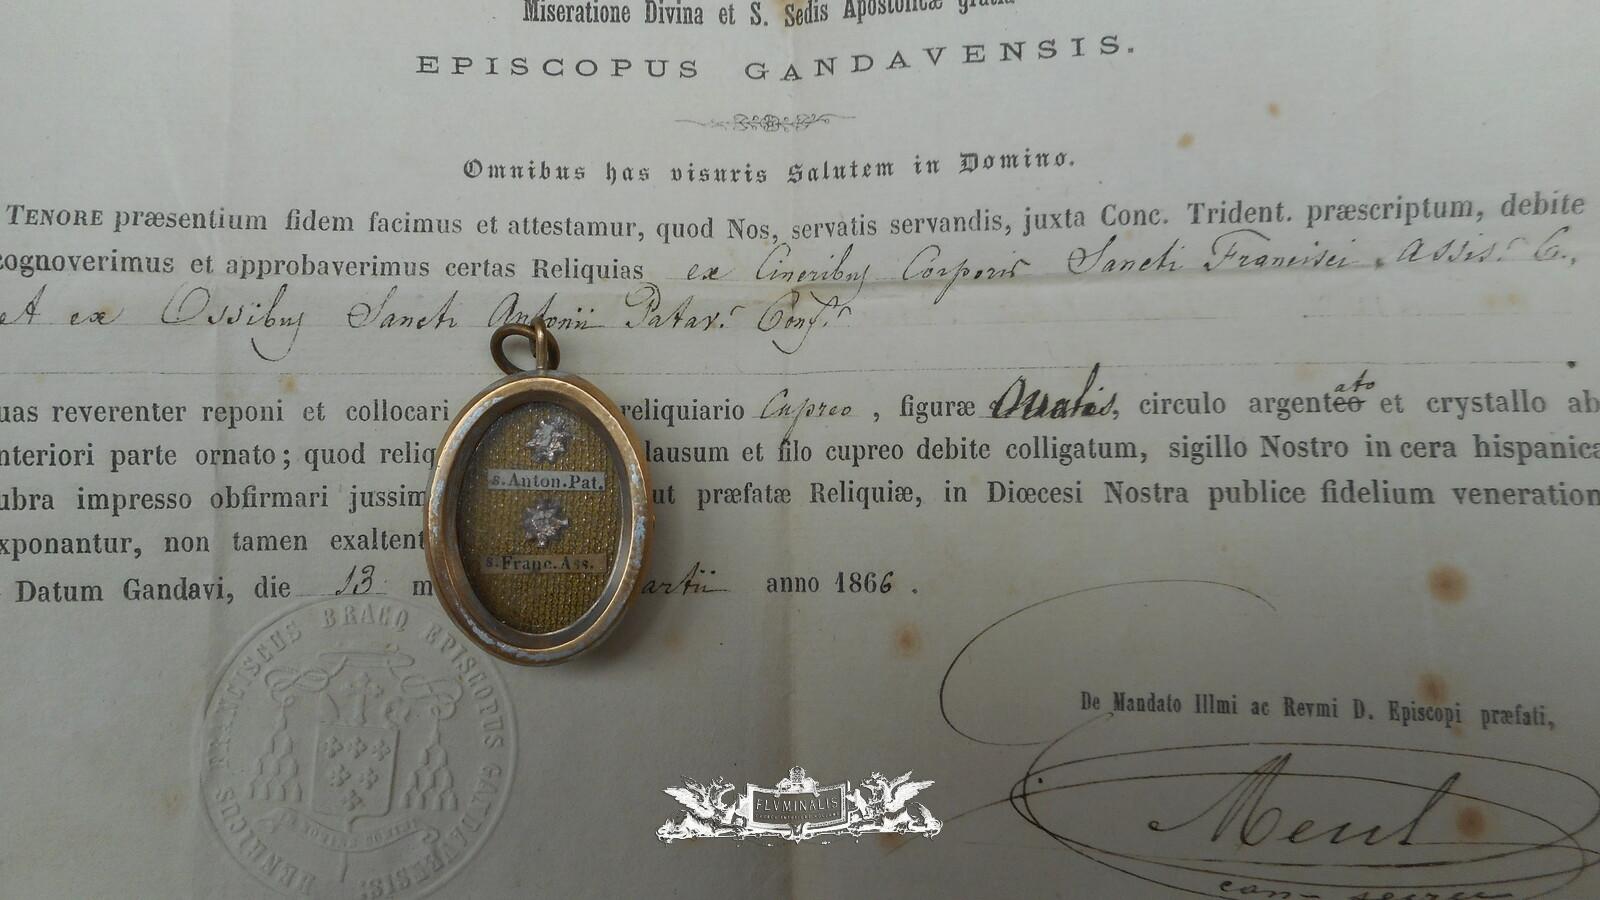 Miseratione Divina et S. Sedis Apostolicæ gratia
EPISCOPUS GANDAVENSIS.
Omnibus has visuris Salutem in Domino.
TENORE præsentium fidem facimus et attestamur, quod Nos, servatis servandis, juxta Conc. Trident. præscriptum, debite
cognoverimus et approbaverimus certas Reliquias ex Cineribus Corporis Sancti Francisci Assis. C.,
et ex Ossibus Sancti Antonii Patav. Conf.
uas reverenter reponi et collocari reliquiario Cupreo, figuræ Ovalis, circulo argenteo ato et crystallo ab
nteriori parte ornato; quod reliq lausum et filo cupreo debite colligatum, sigillo Nostro in cera hispanica
ubra impresso obfirmari jussim ut præfatæ Reliquiæ, in Diœcesi Nostra publice fidelium veneration
xponantur, non tamen exaltent
Datum Gandavi, die 13 m artii anno 1866.
s.Anton.Pat.
s.Franc.Ass.
HENRICUS FRANCISCUS BRACQ EPISCOPUS GANDAVENSIS
De Mandato Illmi ac Revmi D. Episcopi præfati,
FLVMINALIS